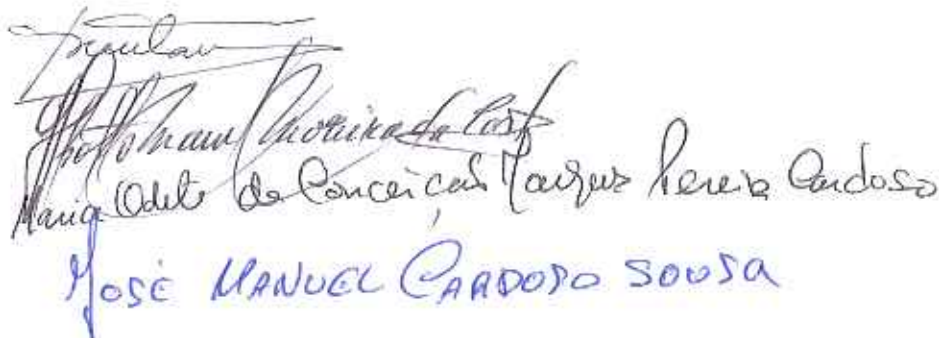 Manuel Moreira da Costa
Maria Odete da Conceição Marques Pereira Cardoso
José MANUEL CARDOSO SOUSA